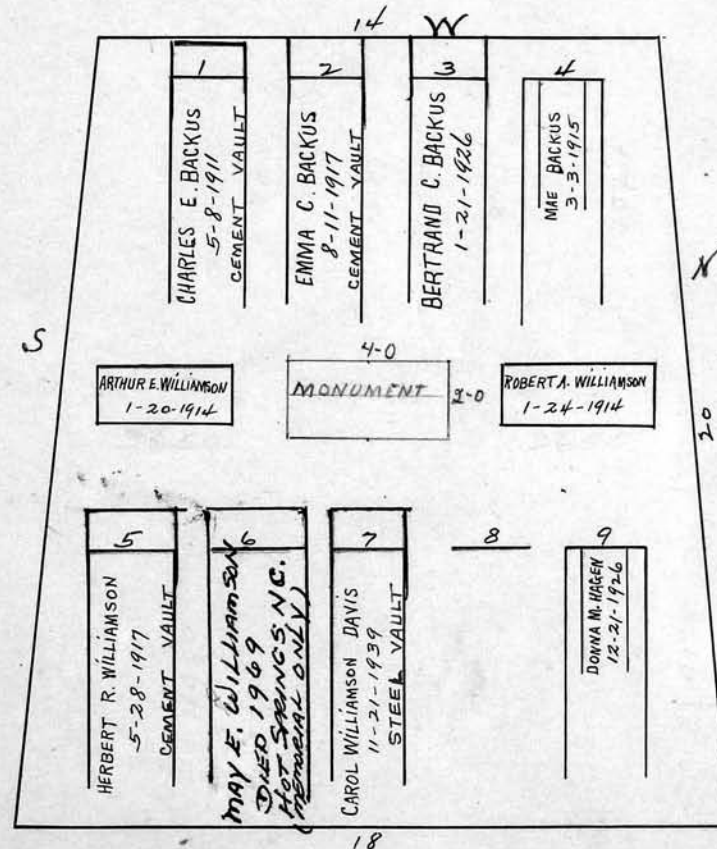 14 W
1
CHARLES E. BACKUS
5-8-1911
CEMENT VAULT
2
EMMA C. BACKUS
8-11-1917
CEMENT VAULT
3
BERTRAND C. BACKUS
1-21-1926
4
MAE BACKUS
3-3-1915
N
S
ARTHUR E. WILLIAMSON
1-20-1914
4-0
MONUMENT
2-0
ROBERT A. WILLIAMSON
1-24-1914
20
5
HERBERT R. WILLIAMSON
5-28-1917
CEMENT VAULT
6
MAY E. WILLIAMSON
DIED 1969
HOT SPRINGS, N.C.
(MEMORIAL ONLY)
7
CAROL WILLIAMSON DAVIS
11-21-1939
STEEL VAULT
8
9
DONNA M. HAGEN
12-21-1926
18